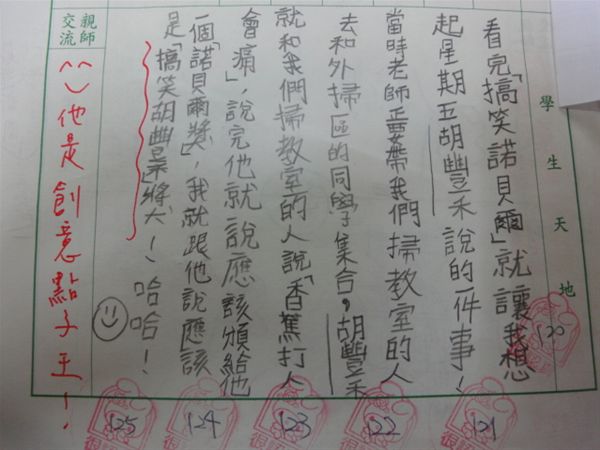 學生天地
看完「搞笑諾貝爾」就讓我想
起星期五胡豐禾說的一件事！
當時老師正要帶我們掃教室的人
去和外掃區的同學集合，胡豐禾
就和我們掃教室的人說「香蕉打人
會痛」，說完他就說應該頒給他
一個「諾貝爾獎」，我就跟他說應該
是「搞笑胡豐禾獎」！哈哈！
親師交流
^^)他是創意點子王！
120
121
122
123
124
125